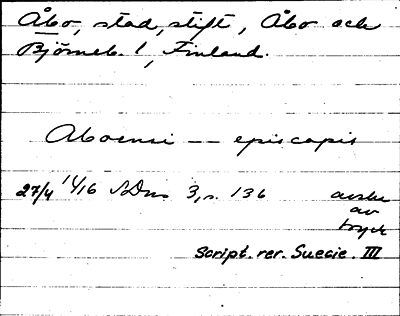 Åbo, stad, stift, Åbo och
Björneb. l, Finland.
Aboensi -- episcopis
27/4 1416 SDns 3, s. 136
avskr
av
tryck
Script. rer. Suecie. III